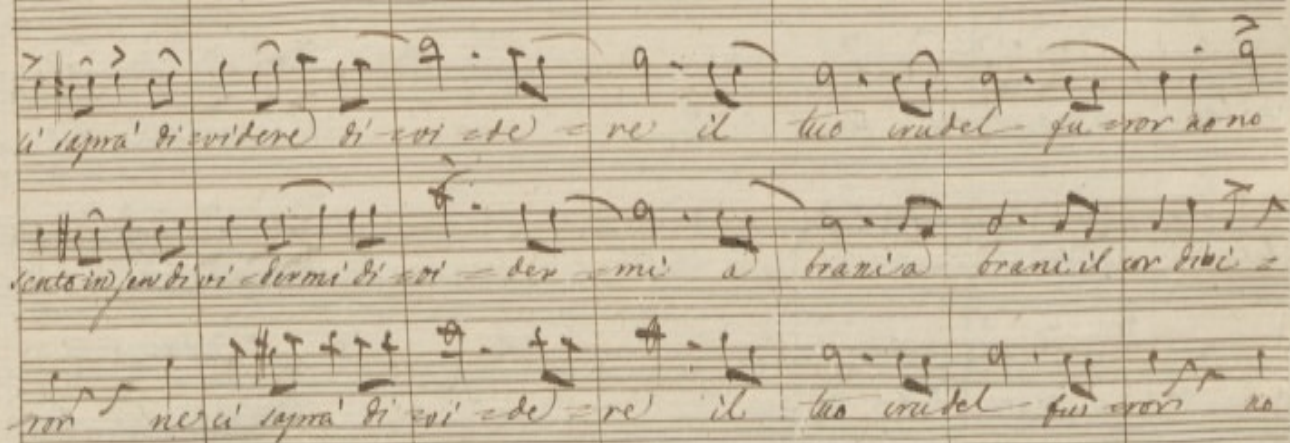 ci saprà di=videre di=vi=de=re il tuo crudel fu=ror no no
sento in sen di vi=dermi di=vi=der=mi a brani a brani il cor divi=
=ror ne ci saprà di=vi=de=re il tuo crudel fu=ror no